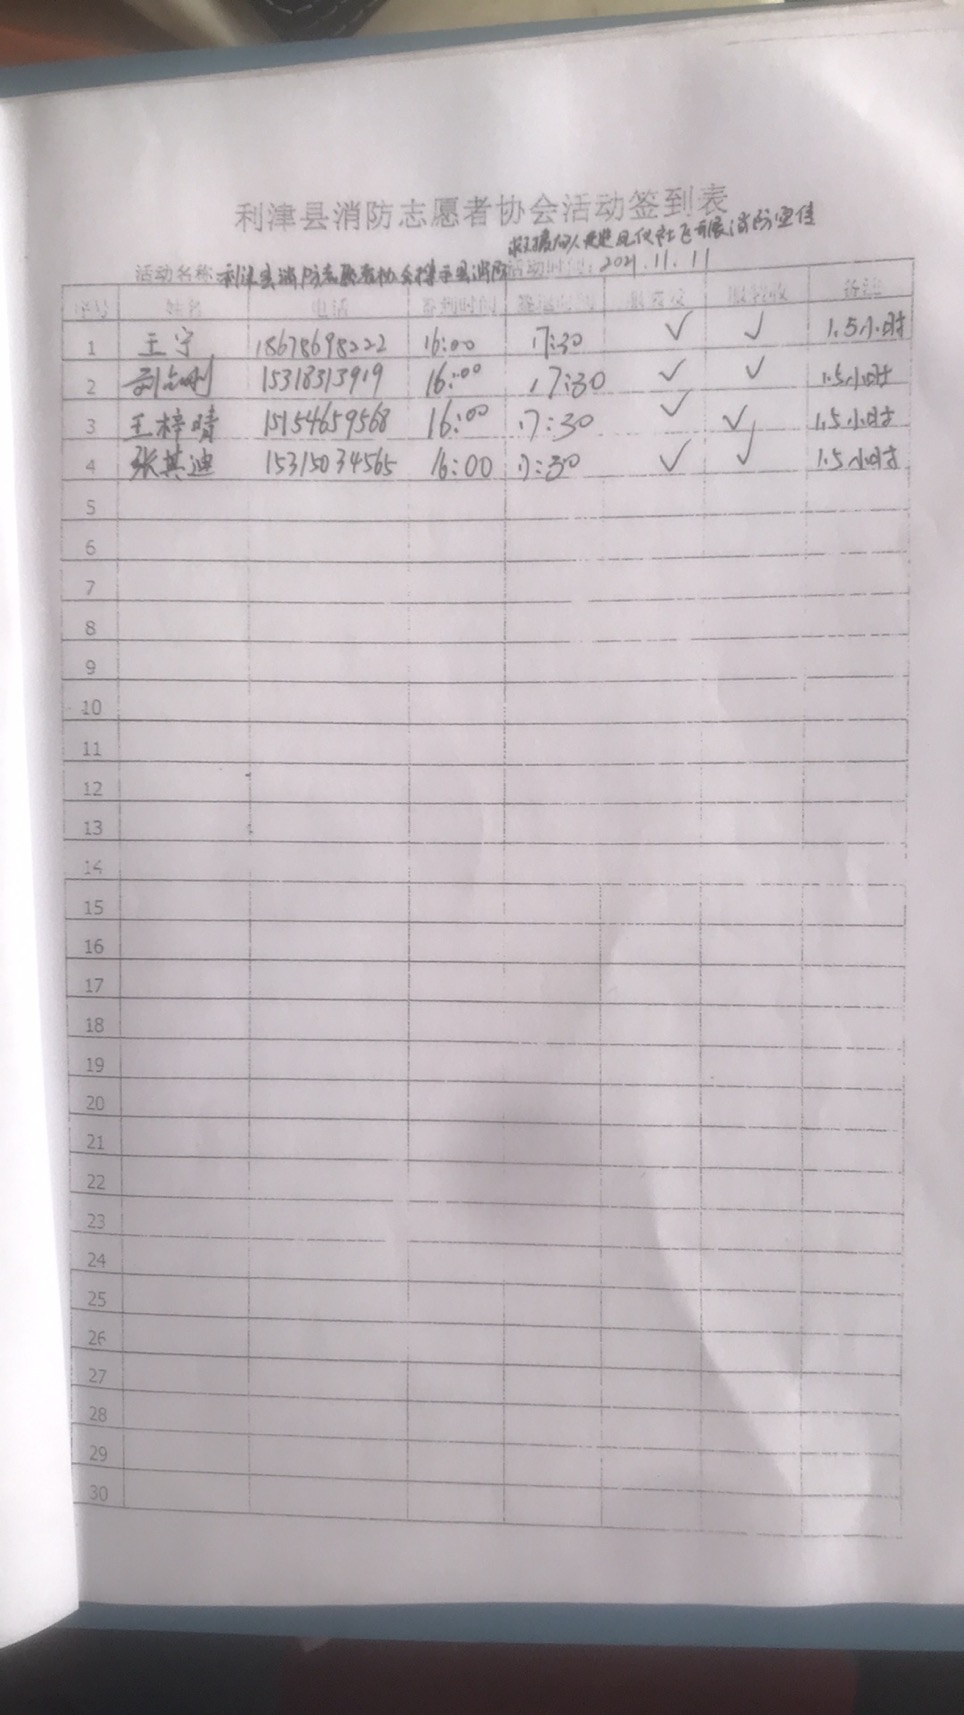 利津县消防志愿者协会活动签到表
救援人员进凤仪社区开展消防宣传
活动名称:利津县消防志愿者协会携手县消防 活动时间:2021.11.11
序号 姓名 电话 签到时间 签退时间 服装发 服装收 备注
1 王宁 18678698222 16:00 17:30 ✓ ✓ 1.5小时
2 刘志刚 15318313919 16:00 17:30 ✓ ✓ 1.5小时
3 王梓晴 15154659568 16:00 17:30 ✓ ✓ 1.5小时
4 张其迪 15315034565 16:00 17:30 ✓ ✓ 1.5小时
5
6
7
8
9
10
11
12
13
14
15
16
17
18
19
20
21
22
23
24
25
26
27
28
29
30